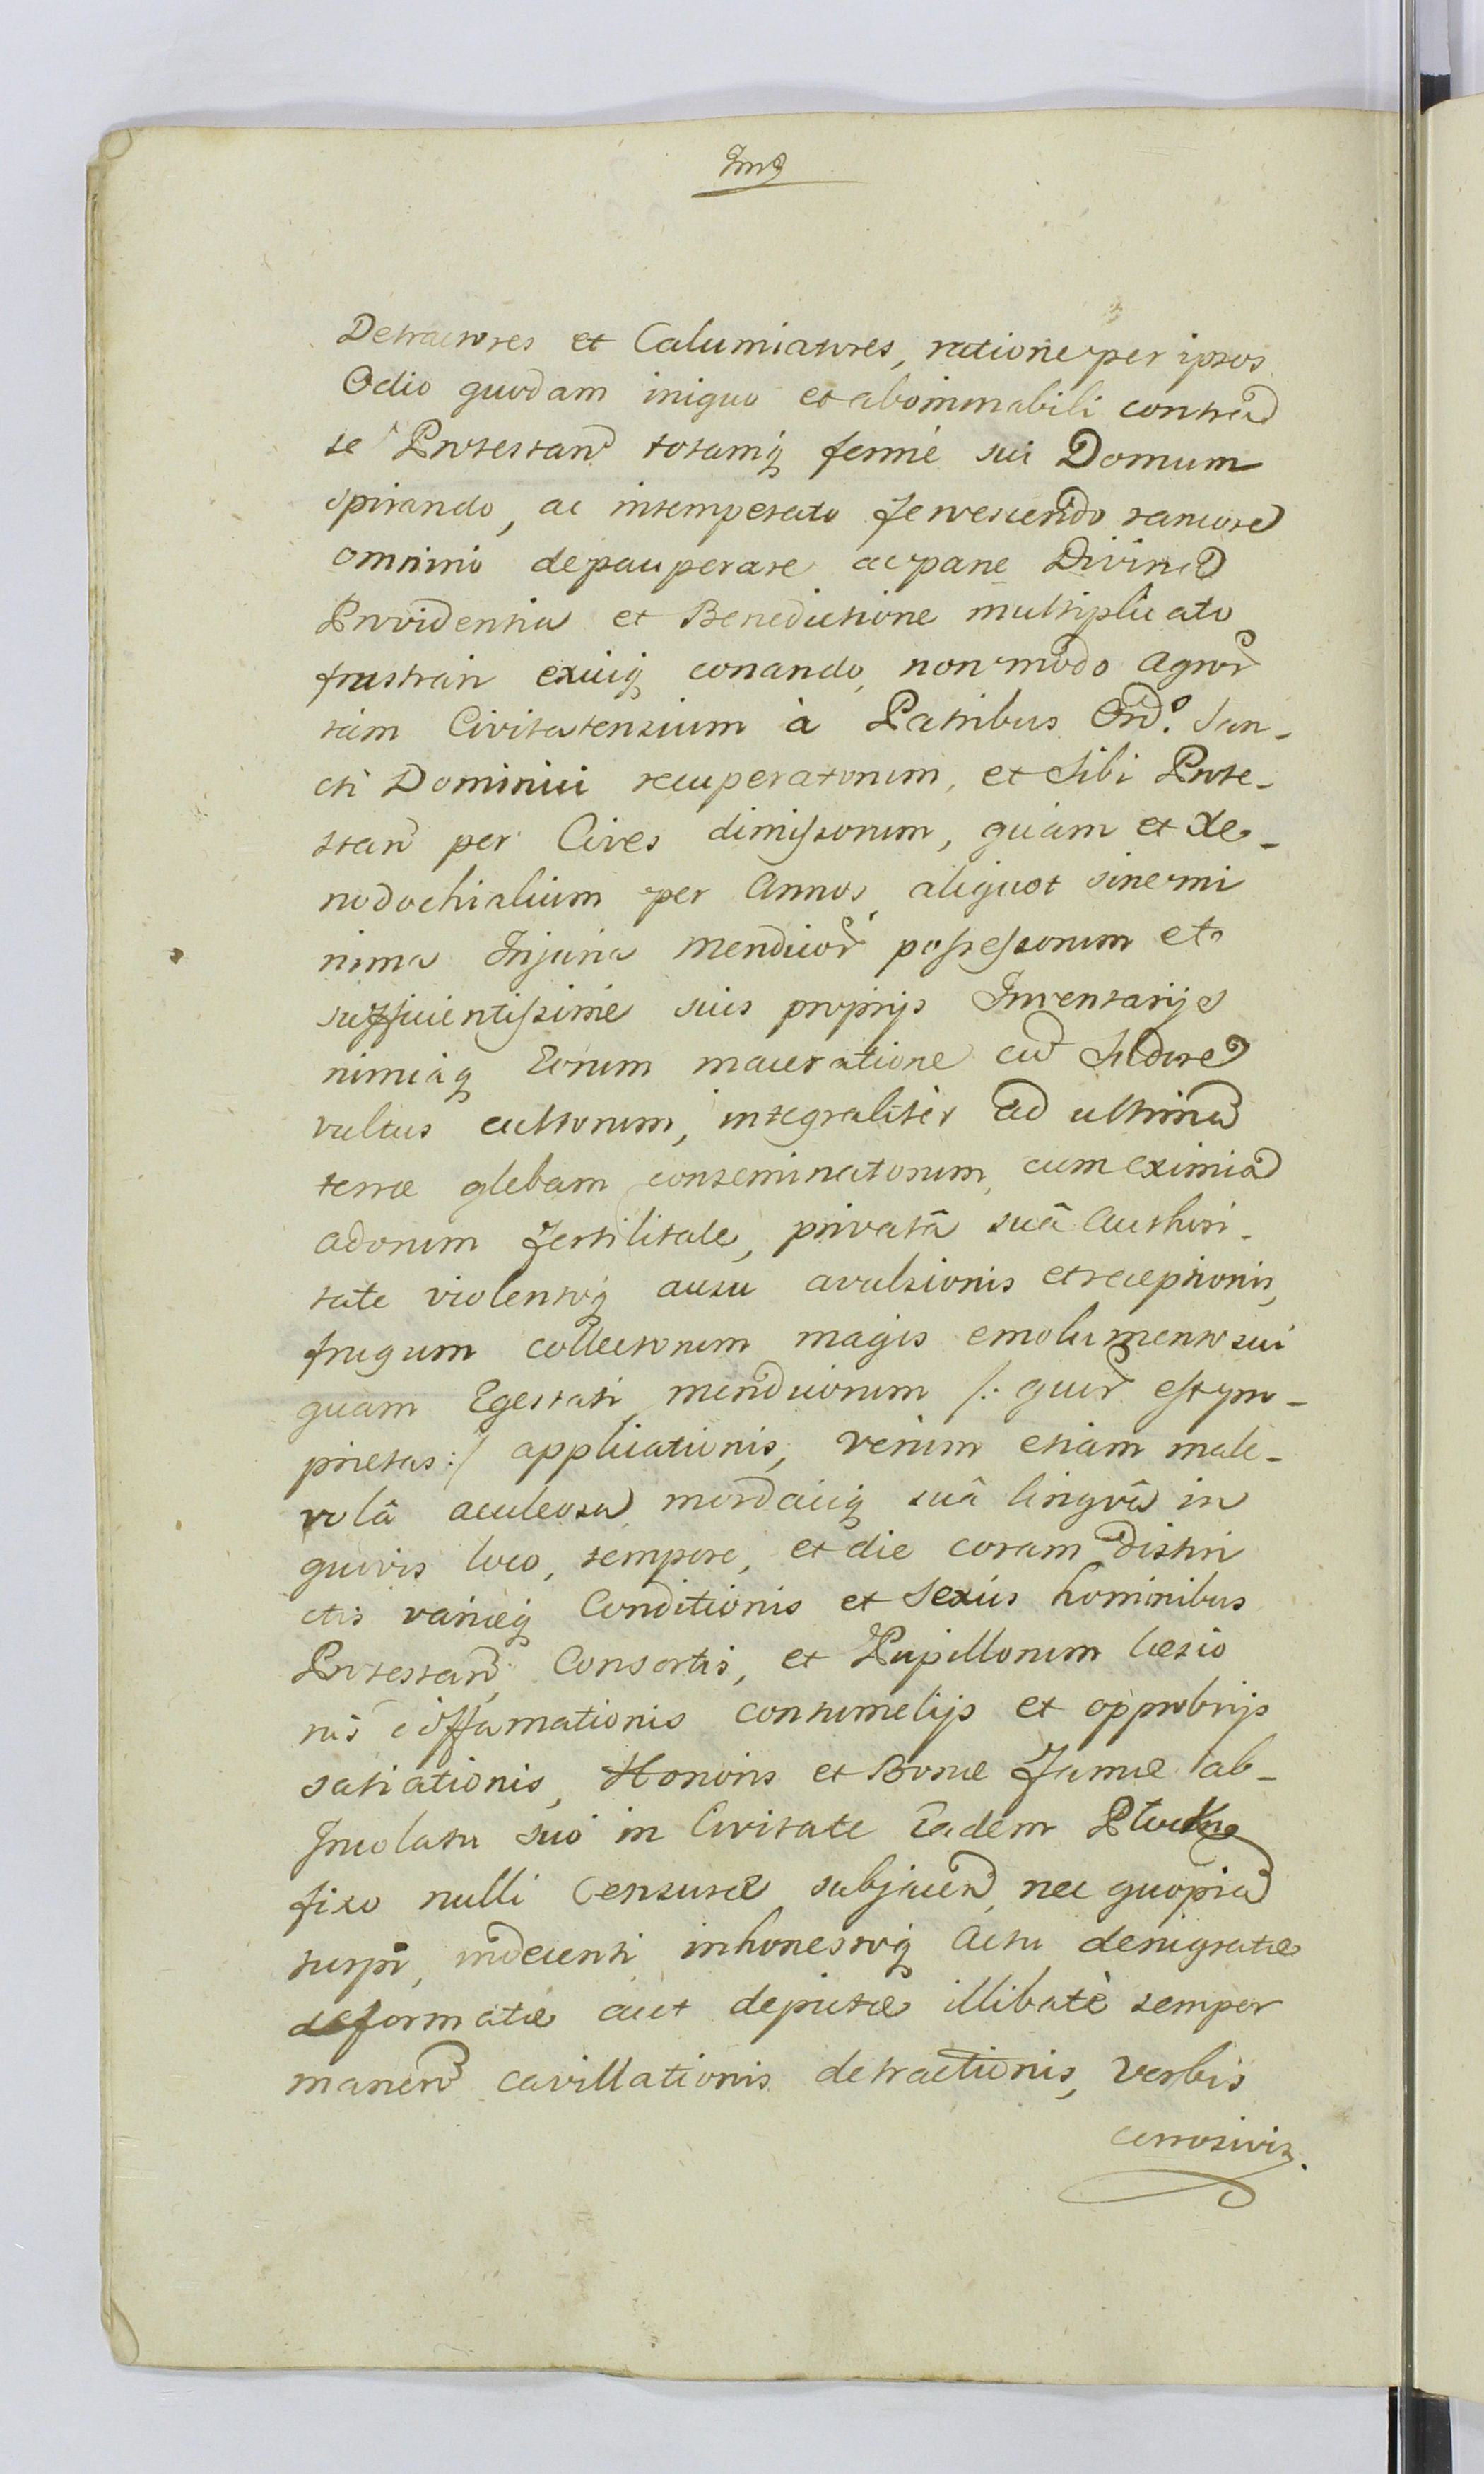 Detractores et Calumiatores, ratione per ipsos
Odio quodam iniquo et abominabili contra
se Protestan totamq ferme sui Domum
spirando, ac intemperato fervescendo rancore
omnino depauperare ac pane Divina
Providentia et Benedictione multiplicato
frustrari exuiq conando, non modo Agror
tam Civitatensium à Patribus Ord.º San-
cti Dominici recuperatorum, et sibi Prote-
stan per Cives dimissorum, quam et Xe-
nodochialium per Annos aliquot sine mi
nima Injuria Mendicor possessorum et
sufficientissime suis proprijs Inventarijs
nimiaq Eorum maceratione cu sudore
vultus cultorum, integraliter ad ultima
terræ glebam conseminatorum, cum eximia
adorum fertilitate, privatâ suâ Authori-
tate violentoq ausu avulsionis et receptionis,
frugum collectorum magis emolumento sui
quam Egestati mendicorum /: quor est pro-
prietas :/ applicationis, verum etiam male-
volâ aculeosa mordaciq suâ lingvâ in
quovis loco, tempore, et die coram distin
ctis variæq Conditionis et Sexus hominibus
Protestan Consortis, et Pupillorum læsio
nis diffamationis contumelijs et opprobrijs
satiationis, Honoris et Bonæ Famæ ab-
Incolatu suo in Civitate Eadem
fixo nulli Censuræ subjacen, nec quopia
turpi, indecenti inhonestoq Actu denigratæ
deformatæ aut depictæ illibatè semper
manen cavillationis detractionis, verbis
corrosivis.